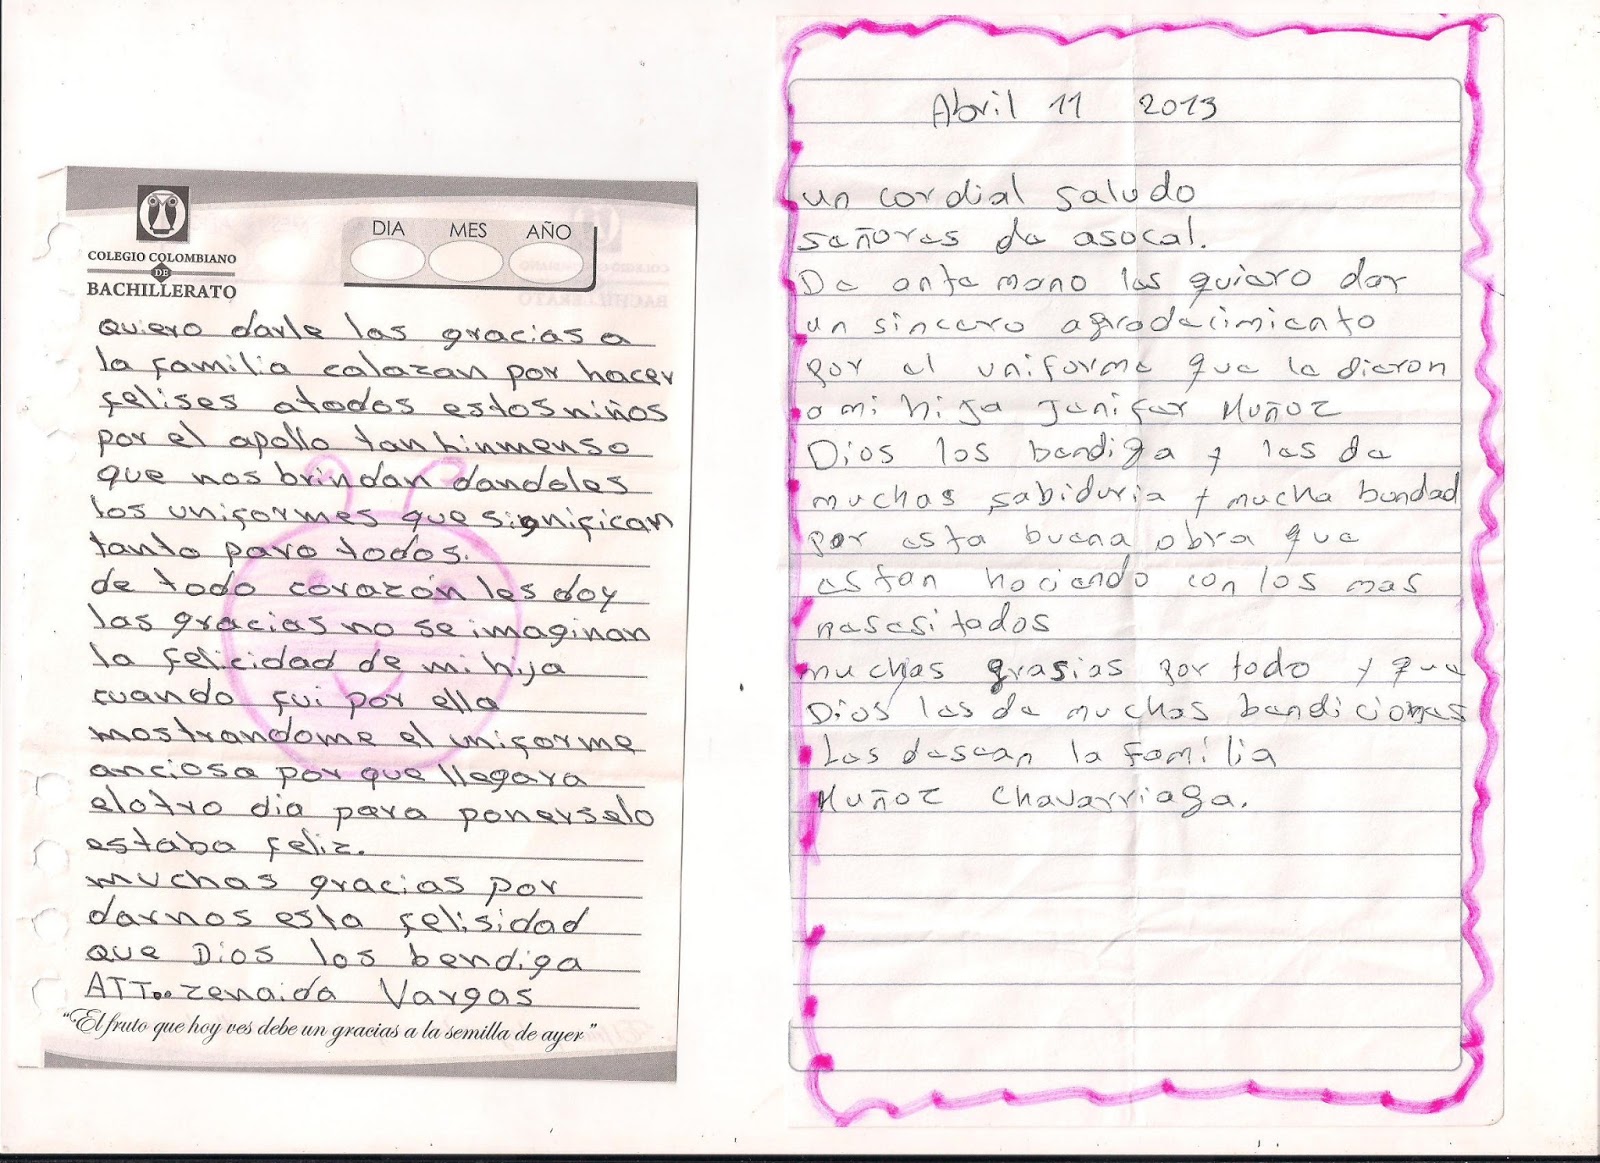 COLEGIO COLOMBIANO
DE
BACHILLERATO
DIA MES AÑO
quiero darle las gracias a
la familia calazan por hacer
felises atodos estos niños
por el apollo tan hinmenso
que nos brindan dandoles
los uniformes que significan
tanto para todos.
de todo corazón les doy
las gracias no se imaginan
la felicidad de mi hija
cuando fui por ella
mostrandome el uniforme
anciosa por que llegara
elotro dia para ponerselo
estaba feliz.
muchas gracias por
darnos esta felisidad
que Dios los bendiga
ATT.. zenaida Vargas
"El fruto que hoy ves debe un gracias a la semilla de ayer"
Abril 11 2013
un cordial saludo
señores de asocal.
De ante mano les quiero dar
un sincero agradecimiento
por el uniforme que le dieron
a mi hija Jenifer Muñoz
Dios los bendiga y les de
muchas sabiduria y mucha bondad
por esta buena obra que
estan haciendo con los mas
nesesitados
muchas grasias por todo y que
Dios les de muchas bendiciones
Les desean la familia
Muñoz Chavarriaga.